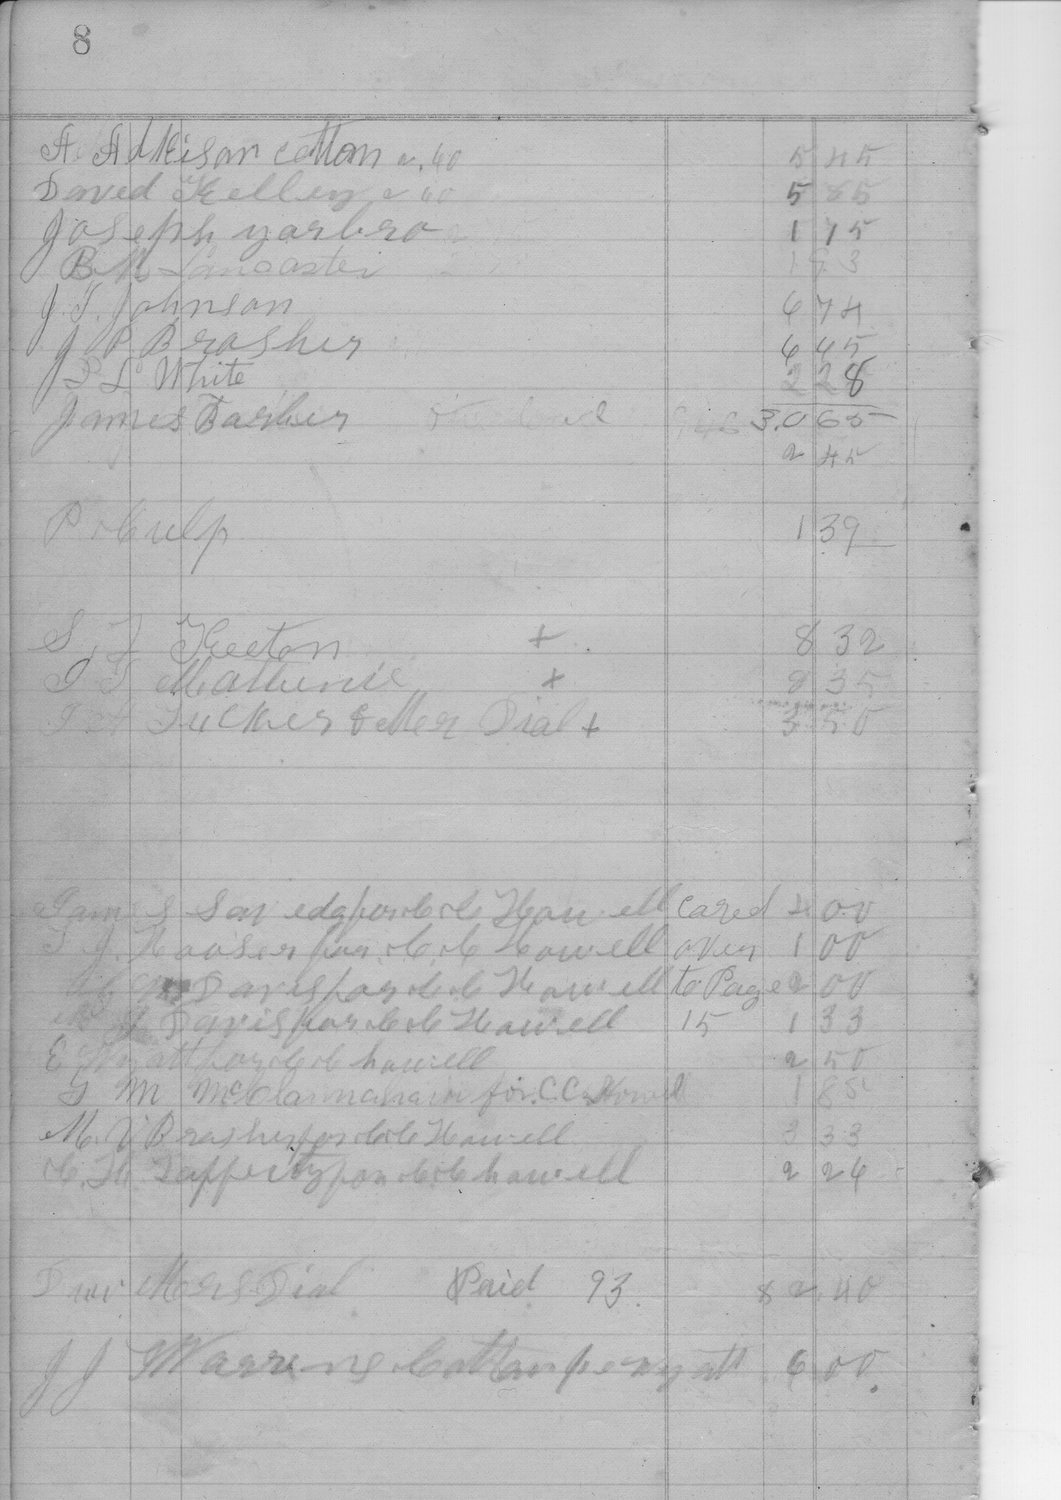 8
A. Adkison cotton 40 5 45
David Kelley 5 85
Joseph yarbro 1 75
B M Lancaster 1 93
J. T. Johnson 6 74
J P Brasher 6 45
J P L White 2 28
James Barber 3.0 65
2 45
P Culp 1 39
S. J Keeton + 8 32
Mathenie + 8 35
Tucker & Mer Dial + 3 50
James for C C Howell cared 4 00
T. J. Hooser for C. C Howell over 1 00
Davis for C C Howell to Page 2 00
Davis for C C Howell 15 1 33
E Wyatt for C C howell 2 50
G M McClannahan for C. C. Howell 1 85
M. V Brasher for C C Howell 3 33
C. H. Tapperty for C C howell 2 24
Mers Dial Paid 93. $ 2.40
J J Warrens Cotton pe wyatt 6 00.